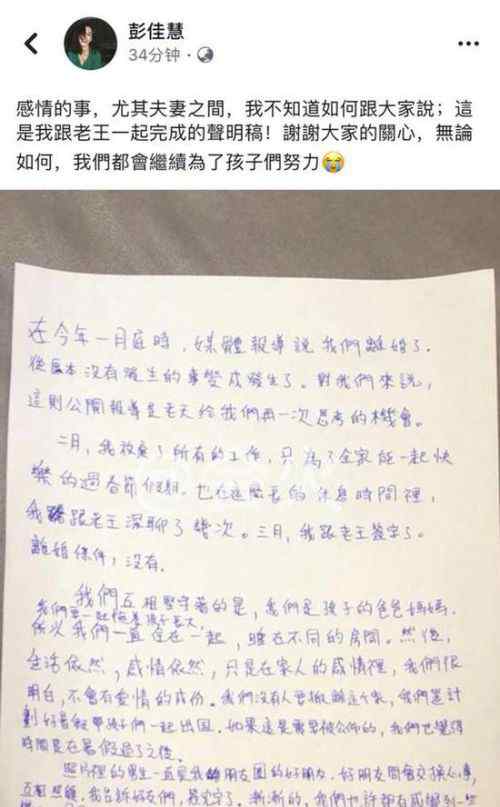 彭佳慧
34分钟
感情的事，尤其夫妻之間，我不知道如何跟大家說；這
是我跟老王一起完成的聲明稿！謝謝大家的關心，無論
如何，我們都會繼續為了孩子們努力😭
在今年一月底時，媒體報導說我們離婚了.
從原本沒有發生的事變成發生了。對我們來說，
這則公開報導是老天給我們再一次思考的機會。
二月，我放棄了所有的工作，只為了全家能一起快
樂的過春節假期.也在這麼長的休息時間裡，
我跟老王深聊了幾次。三月，我跟老王簽字了。
離婚條件；沒有.
我們互相堅守著的是，我們是孩子的爸爸媽媽.
我們要一起陪著孩子長大.
所以我們一直住在一起，睡在不同的房間。然後，
生活依然，感情依然，只是在家人的感情裡，我們很
明白，不會有愛情的成份。我們沒有人要撤離這個家，我們是計
劃好暑假帶孩子們一起出國.如果這是需要被公佈的，我們也覺得
時間是在暑假過了之後。
照片裡的男生一直是我朋友圈的好朋友.好朋友間會交換心事，
互相照顧.我告訴好友們，我簽字了。漸漸的，我們也許都有感